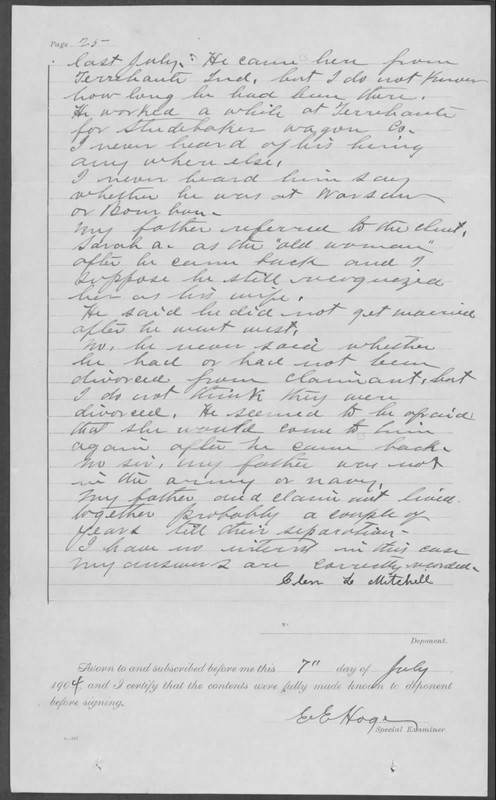 Page 25
last July. He came here from
Terrehaute Ind. but I do not know
how long he had been there.
He worked a while at Terrehaute
for Studebaker wagon Co.
I never heard of his being
any where else.
I never heard him say
whether he was at Warsaw
or Bourbon.
My father referred to the clmt.
Sarah A. as the "old woman"
after he came back and I
suppose he still recognized
her as his wife.
He said he did not get married
after he went west.
No, he never said whether
he had or had not been
divorced from claimant, but
I do not think they were
divorced. He seemed to be afraid
that she would come to him
again after he came back.
No sir, my father was not
in the army or navy.
My father and claimant lived
together probably a couple of
years till their separation.
I have no interest in this case
my answers are correctly recorded.
Clem L Mitchell
Deponent.
Sworn to and subscribed before me this 7" day of July
1904, and I certify that the contents were fully made known to deponent
before signing.
E E Hoge
Special Examiner